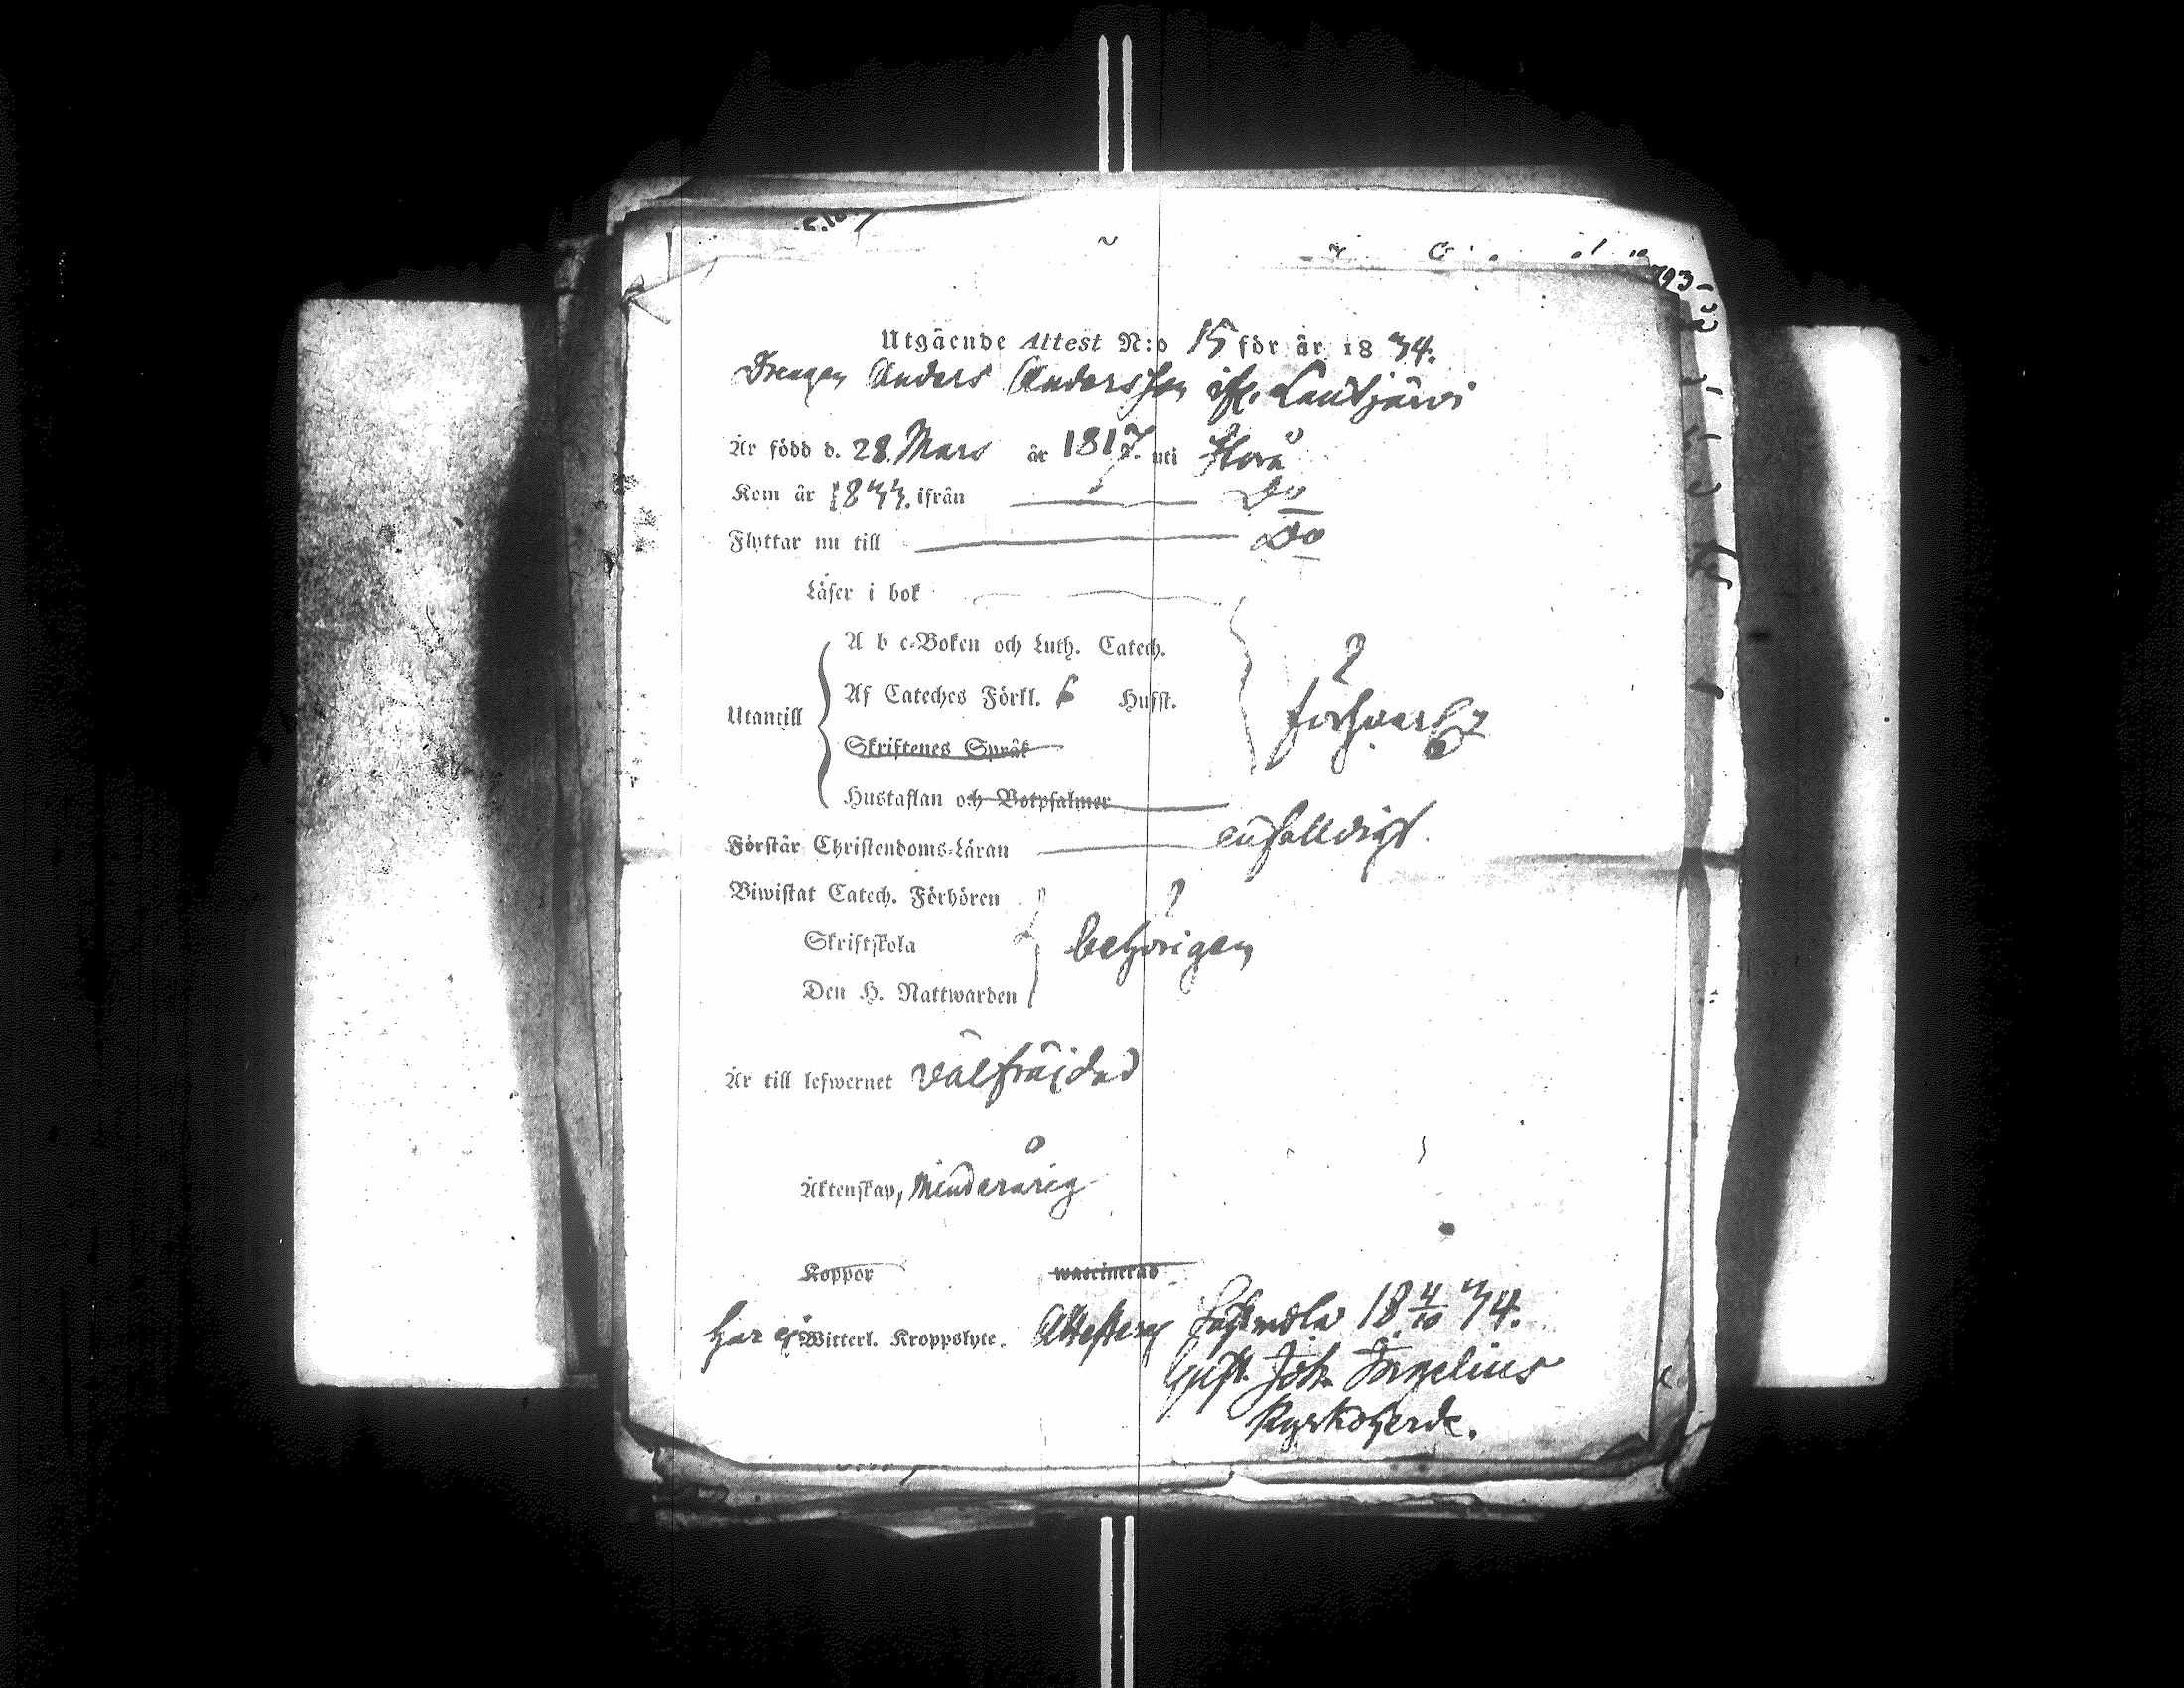 Utgående Attest N:o 15 för år 1834.
Drengen Anders Andersson ifr. Lautjärvi
Är född d. 28. Mars år 1817. uti Florå
Kom år 1833. ifrån Do
Flyttar nu till Do
Läser i bok
A b c-Boken och Luth. Catech.
Utantill Af Cateches Förkl. 6 Husst. försvarl.
Skriftenes Språk
Hustaflan och Botpsalmer
Förstår Christendoms-Läran enfalldigt.
Biwistat Catech. Förhören
Skriftskola behörigen
Den H. Nattwarden
Är till lefwernet välfräjdad
Äktenskap, Minderårig
Koppor waccinerad
har ej Witterl. Kroppslyte. Attesterar 18 4/10 34.
Gust. Joh. Ingelius
Kyrkoherde.